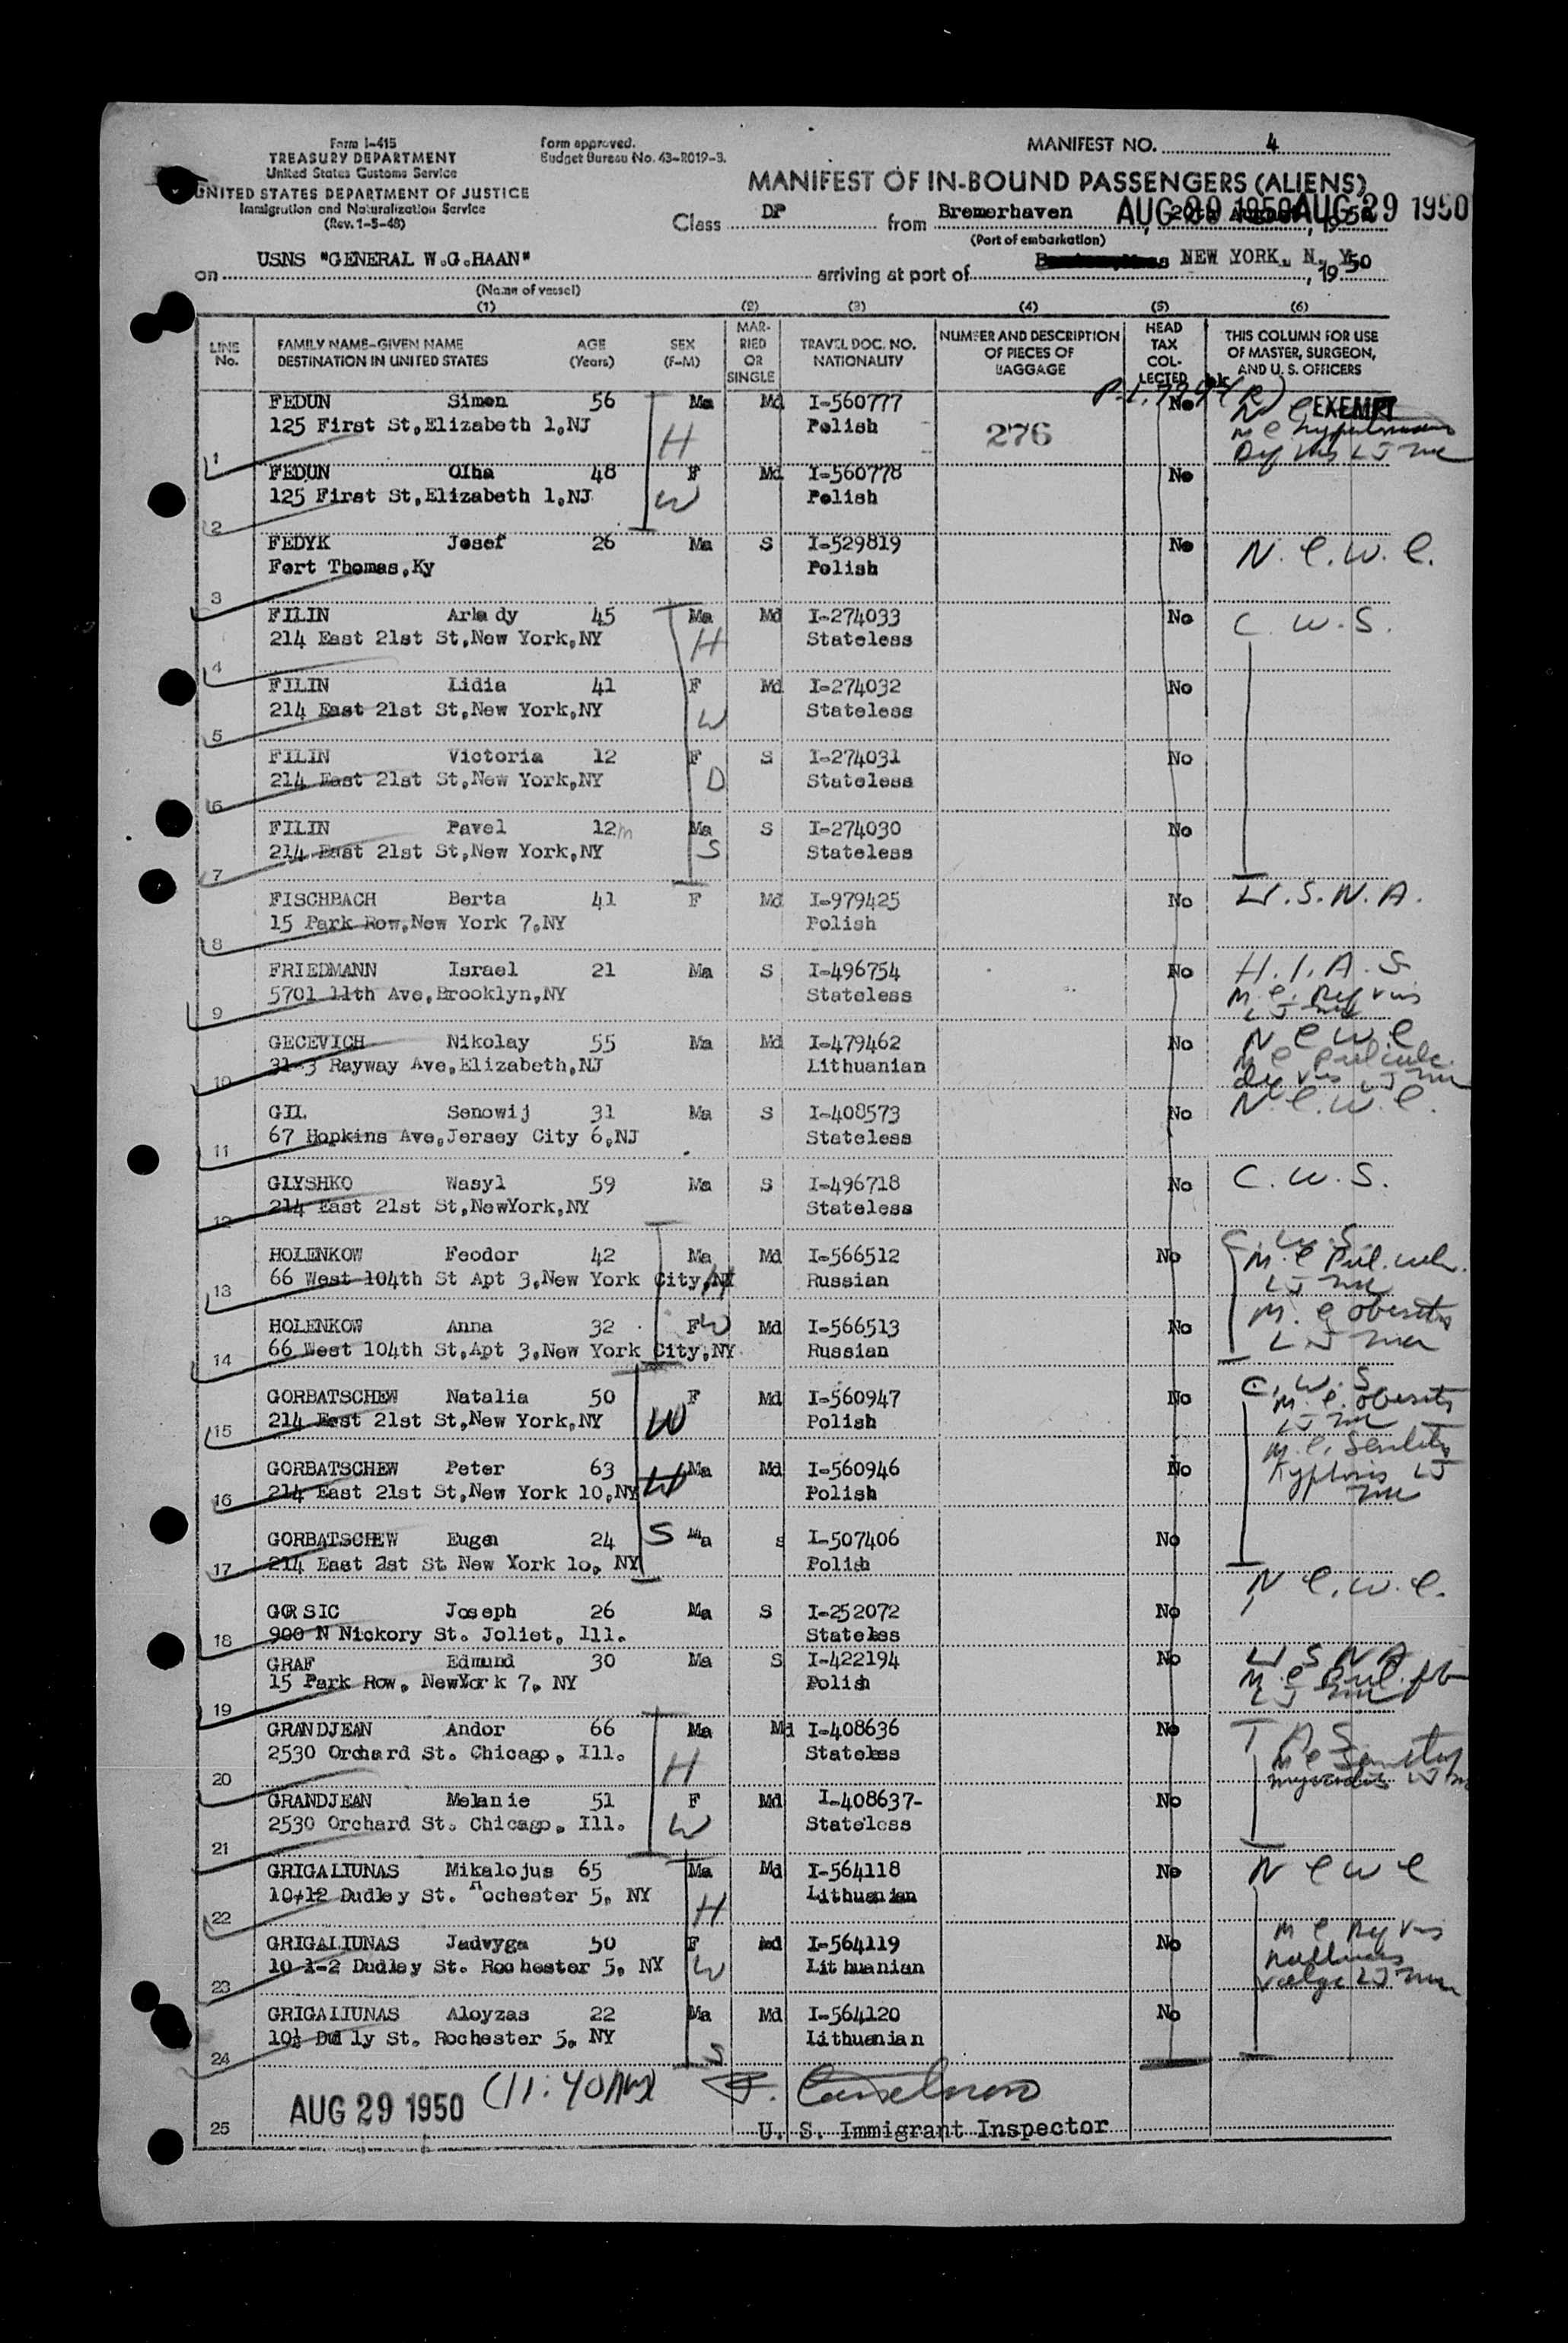 Form I-415
TREASURY DEPARTMENT
United States Customs Service
UNITED STATES DEPARTMENT OF JUSTICE
Immigration and Naturalization Service
(Rev. 1-5-48)
Form approved.
Budget Bureau No. 43-R019-3.
MANIFEST NO. 4
MANIFEST OF IN-BOUND PASSENGERS (ALIENS)
Class DP from Bremerhaven, AUG 29 1950 AUG 29 1950
(Port of embarkation)
on USNS "GENERAL W.G.HAAN" arriving at port of NEW YORK, N. Y., 1950
(Name of vessel)
(1) (2) (3) (4) (5) (6)
LINE No.
FAMILY NAME-GIVEN NAME AGE (Years) SEX (F-M)
DESTINATION IN UNITED STATES
MARRIED OR SINGLE
TRAVEL DOC. NO. NATIONALITY
NUMBER AND DESCRIPTION OF PIECES OF BAGGAGE
HEAD TAX COLLECTED
THIS COLUMN FOR USE OF MASTER, SURGEON, AND U. S. OFFICERS
FEDUN Simon 56 Ma Md I-560777 No EXEMPT
125 First St,Elizabeth 1,NJ H Polish 276
1
FEDUN Olha 48 F Md I-560778 No
125 First St,Elizabeth 1,NJ W Polish
2
FEDYK Josef 26 Ma S I-529819 No N.C.W.C.
Fort Thomas,Ky Polish
3
FILIN Arkady 45 Ma Md I-274033 No C.W.S.
214 East 21st St,New York,NY H Stateless
4
FILIN Lidia 41 F Md I-274032 No
214 East 21st St,New York,NY W Stateless
5
FILIN Victoria 12 F S I-274031 No
214 East 21st St,New York,NY D Stateless
6
FILIN Pavel 12m Ma S I-274030 No
214 East 21st St,New York,NY S Stateless
7
FISCHBACH Berta 41 F Md I-979425 No U.S.N.A.
15 Park Row,New York 7,NY Polish
8
FRIEDMANN Israel 21 Ma S I-496754 No H.I.A.S
5701 11th Ave,Brooklyn,NY Stateless
9
GECEVICH Nikolay 55 Ma Md I-479462 No N C W.C
31-3 Rayway Ave,Elizabeth,NJ Lithuanian
10
GIL Senowij 31 Ma S I-408573 No N.C.W.C.
67 Hopkins Ave,Jersey City 6,NJ Stateless
11
GLYSHKO Wasyl 59 Ma S I-496718 No C.W.S.
214 East 21st St,NewYork,NY Stateless
12
HOLENKOW Feodor 42 Ma Md I-566512 No C.W.S.
66 West 104th St Apt 3,New York City,NY H Russian
13
HOLENKOW Anna 32 F W Md I-566513 No M.C obesity
66 West 104th St,Apt 3,New York City,NY Russian
14
GORBATSCHEW Natalia 50 F Md I-560947 No C.W.S
214 East 21st St,New York,NY W Polish M.C. obesity
15
GORBATSCHEW Peter 63 Ma Md I-560946 No M.C. Senility
214 East 21st St,New York 10,NY Polish Kyphosis
16
GORBATSCHEW Eugen 24 S Ma s I-507406 No
214 East 2ast St New York 1o, NY Polish
17
GORSIC Joseph 26 Ma S I-252072 No N C.W.C.
900 N Nickory St. Joliet, Ill. Stateless
18
GRAF Edmund 30 Ma S I-422194 No U S N A
15 Park Row, NewYork 7, NY Polish
19
GRANDJEAN Andor 66 Ma Md I-408636 No
2530 Orchard St. Chicago, Ill. H Stateless
20
GRANDJEAN Melanie 51 F Md I-408637- No
2530 Orchard St. Chicago, Ill. W Stateless
21
GRIGALIUNAS Mikalojus 65 Ma Md I-564118 No N C W C
10+12 Dudley St. Rochester 5, NY H Lithuanian
22
GRIGALIUNAS Jadvyga 50 F Md I-564119 No
10 1-2 Dudley St. Rochester 5, NY W Lithuanian
23
GRIGALIUNAS Aloyzas 22 Ma Md I-564120 No
10½ Dudly St. Rochester 5, NY S Lithuanian
24
AUG 29 1950 (11:40AM)
25 U. S. Immigrant Inspector